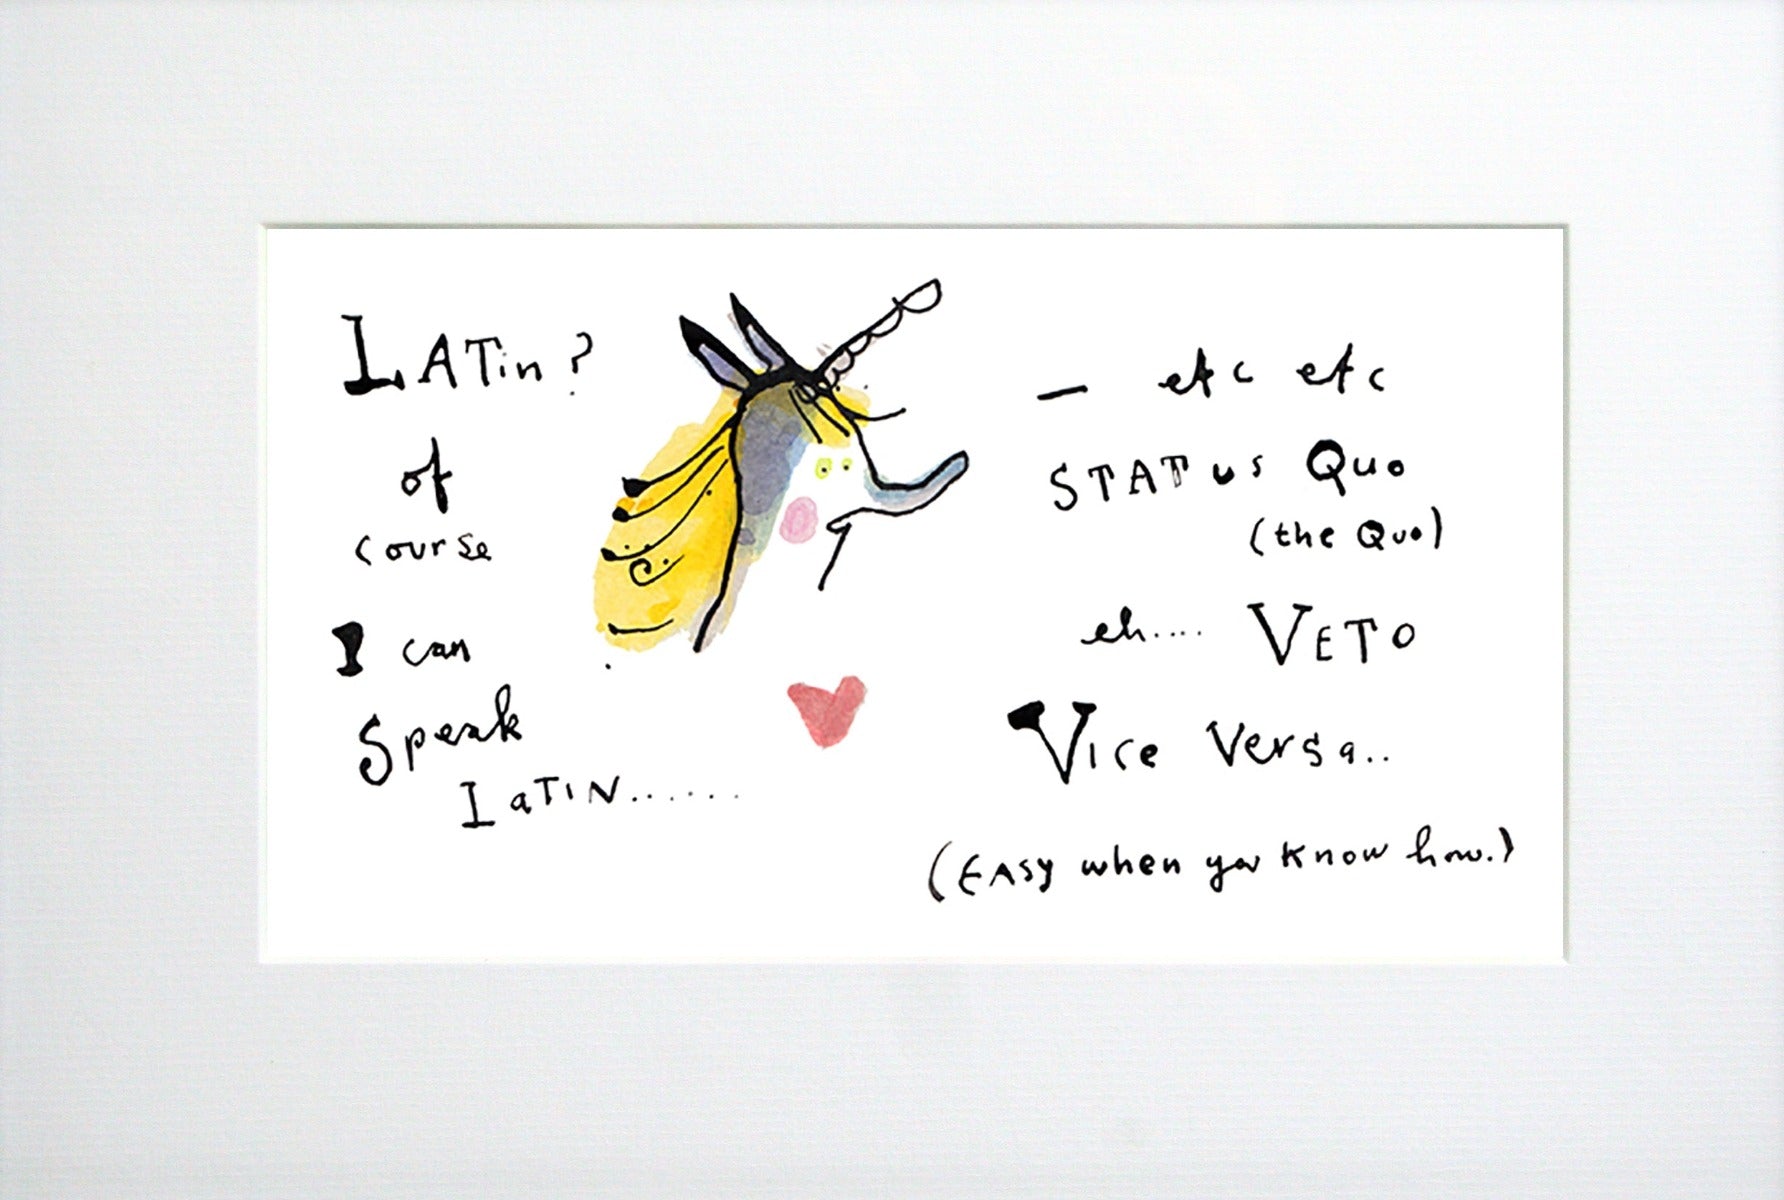 LATin?
of
course
I can
Speak
LaTIN......
— etc etc
STATUS Quo
(the Quo)
eh.... VETO
Vice Versa..
(EASY when you know how.)